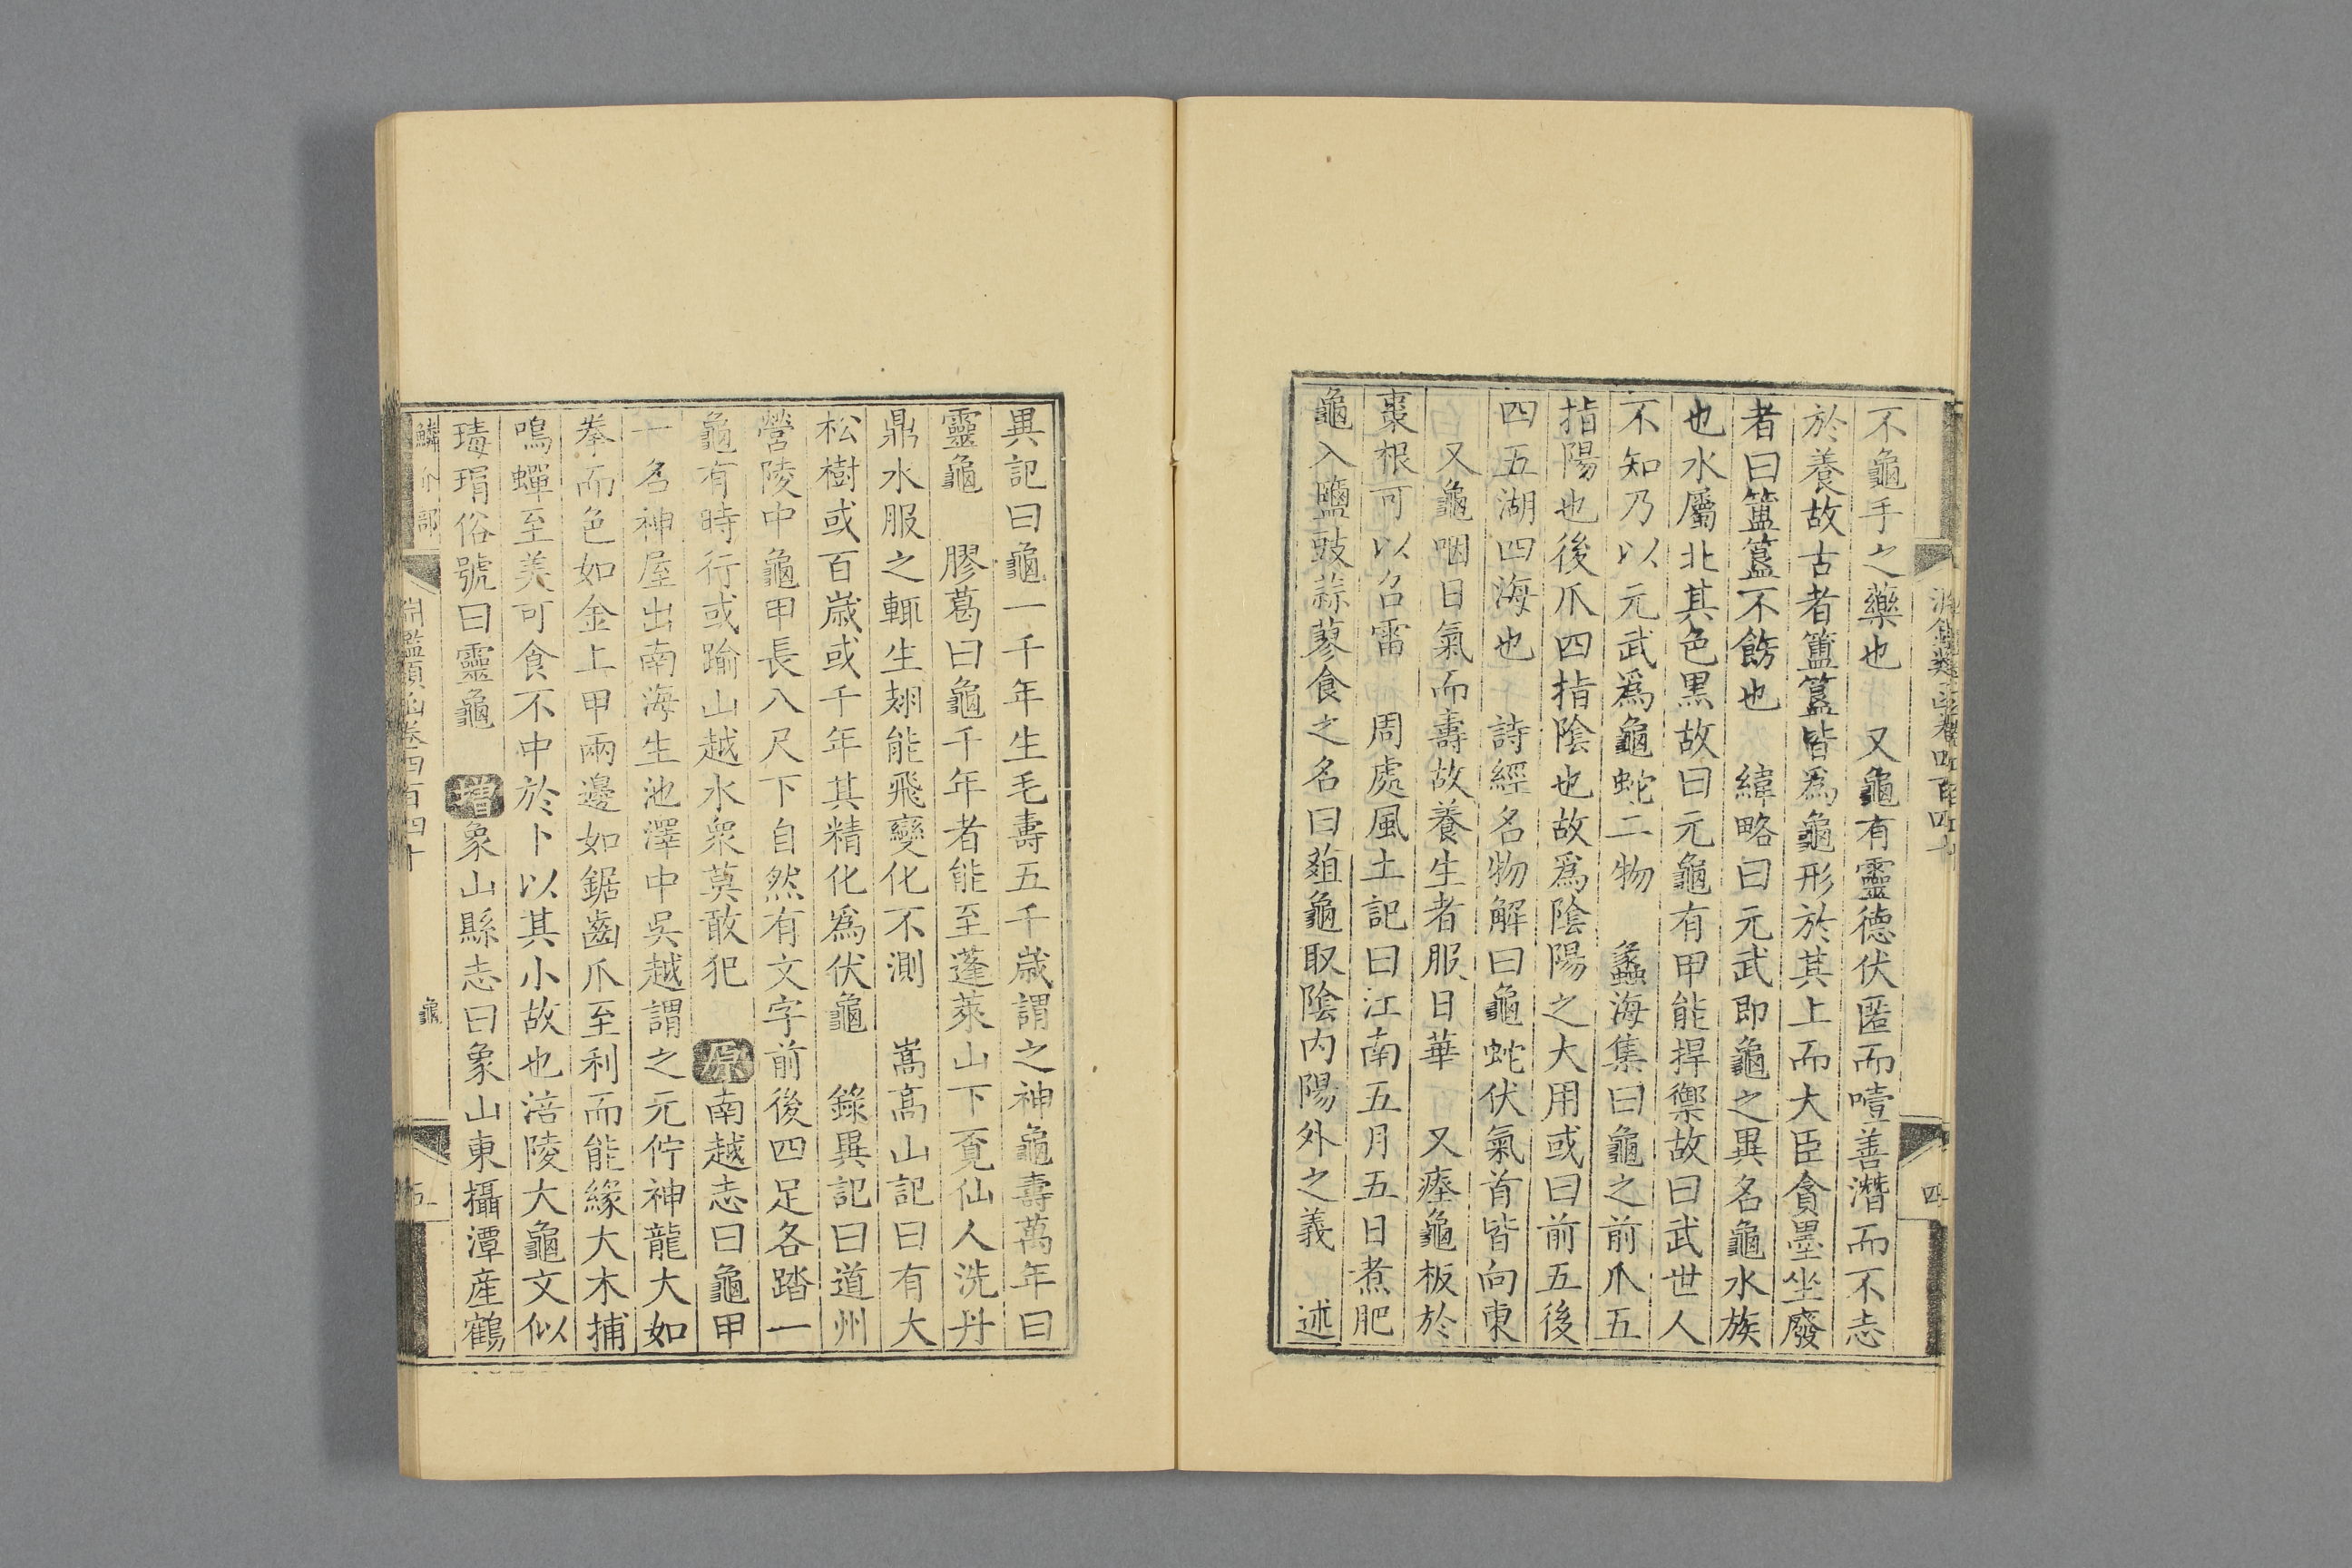 不龜手之藥也　又龜有靈德伏匿而噎善潛而不志
於養故古者簠簋皆爲龜形於其上而大臣貪墨坐廢
者曰簠簋不飭也　緯略曰元武即龜之異名龜水族
也水屬北其色黑故曰元龜有甲能捍禦故曰武世人
不知乃以元武爲龜蛇二物　蠡海集曰龜之前爪五
指陽也後爪四指陰也故爲陰陽之大用或曰前五後
四五湖四海也　詩經名物解曰龜蛇伏氣首皆向東
又龜咽日氣而壽故養生者服日華　又瘞龜板於
棗根可以召雷　周處風土記曰江南五月五日煮肥
龜入鹽豉蒜蓼食之名曰葅龜取陰内陽外之義　述
四
異記曰龜一千年生毛壽五千歲謂之神龜壽萬年曰
靈龜　膠葛曰龜千年者能至蓬萊山下覔仙人洗丹
鼎水服之輒生翅能飛變化不測　嵩高山記曰有大
松樹或百歲或千年其精化爲伏龜　錄異記曰道州
營陵中龜甲長八尺下自然有文字前後四足各踏一
龜有時行或踰山越水衆莫敢犯　原南越志曰龜甲
一名神屋出南海生池澤中吳越謂之元佇神龍大如
拳而色如金上甲兩邊如鋸齒爪至利而能緣大木捕
鳴蟬至美可食不中於卜以其小故也涪陵大龜文似
瑇瑁俗號曰靈龜　增象山縣志曰象山東攝潭産鶴
鱗介部
淵鑑類函卷四百四十
龜
五